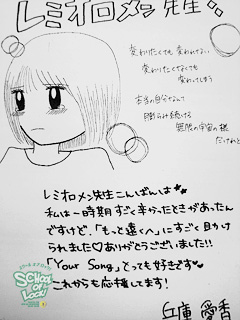 レミオロメン先生
変わりたくても変われない
変わりたくなくても
変わってしまう
本当の自分なんて
膨らみ続ける
無限の宇宙の様
だけれど
レミオロメン先生こんばんは
私は一時期すごく辛かったときがあったん
ですけど、「もっと遠くへ」にすごく助け
られました♡ありがとうございました!!
「Your Song」とっても好きです
これからも応援してます!
兵庫 愛香
SCHOOL
OF
LOCK!